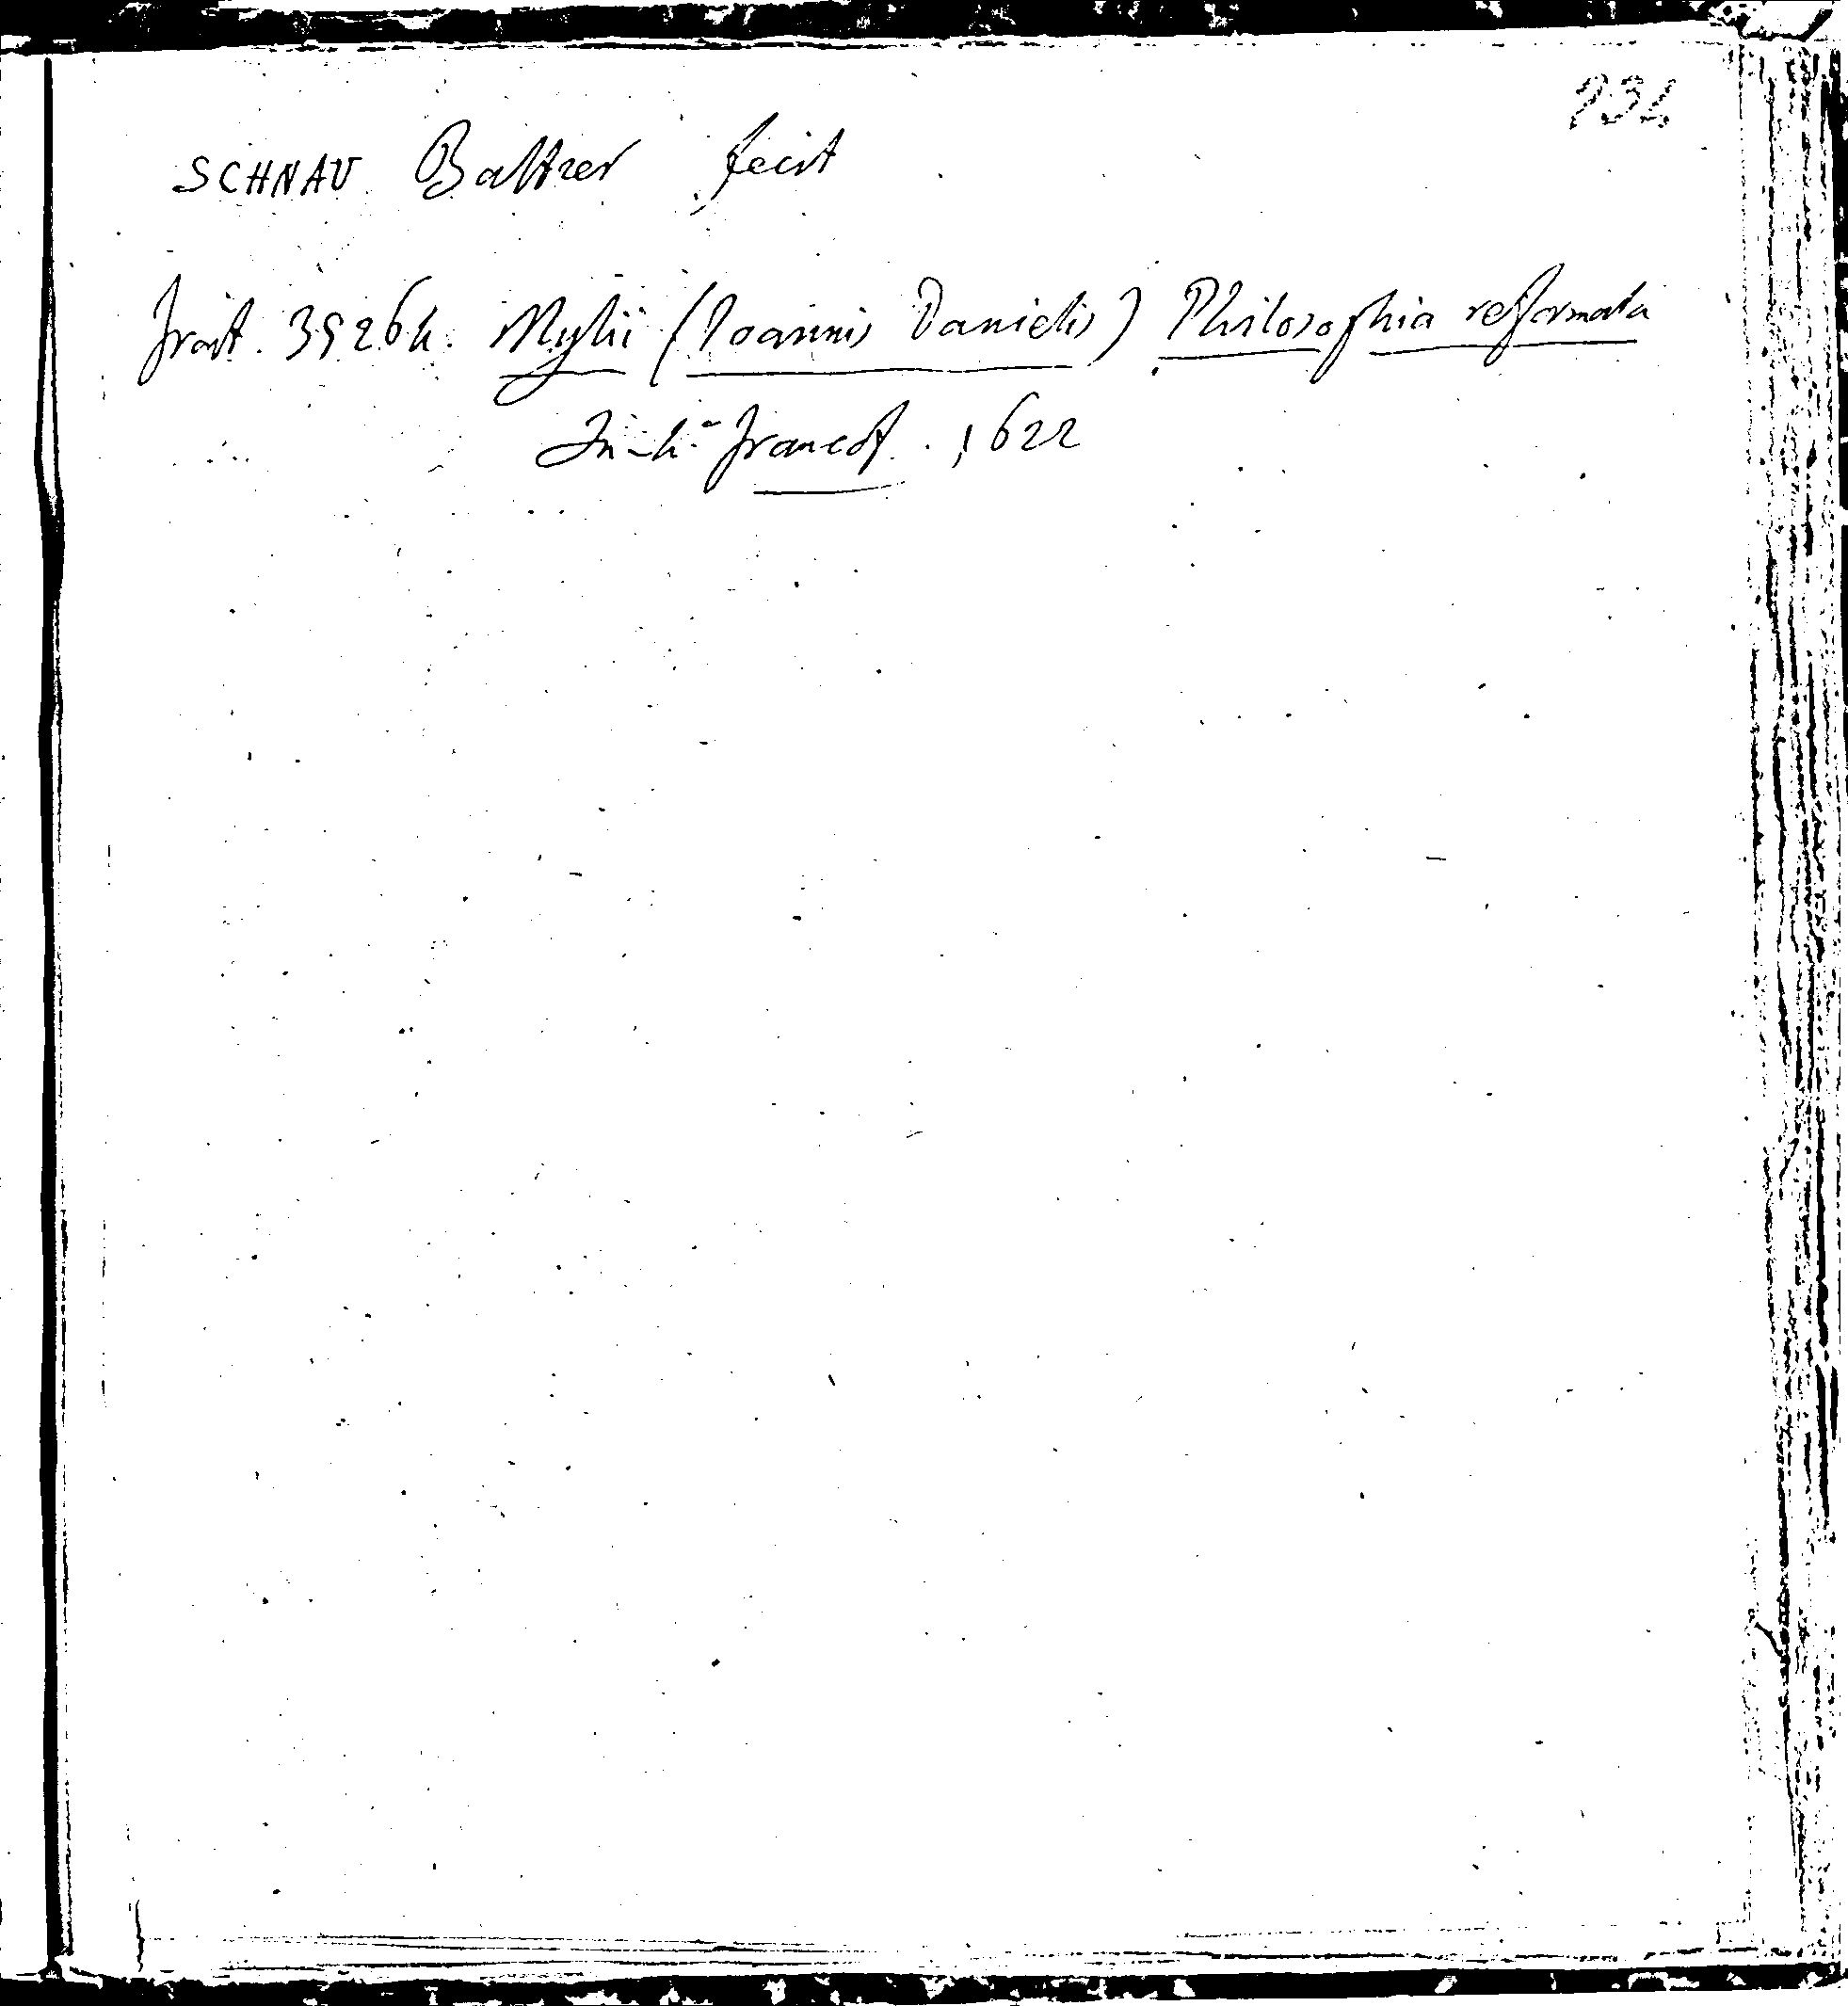 SCHNAU Baltzer fecit
front. 39264. Mylii (Ioannis Danielis) Philosophia reformata
In-4° francof. 1622